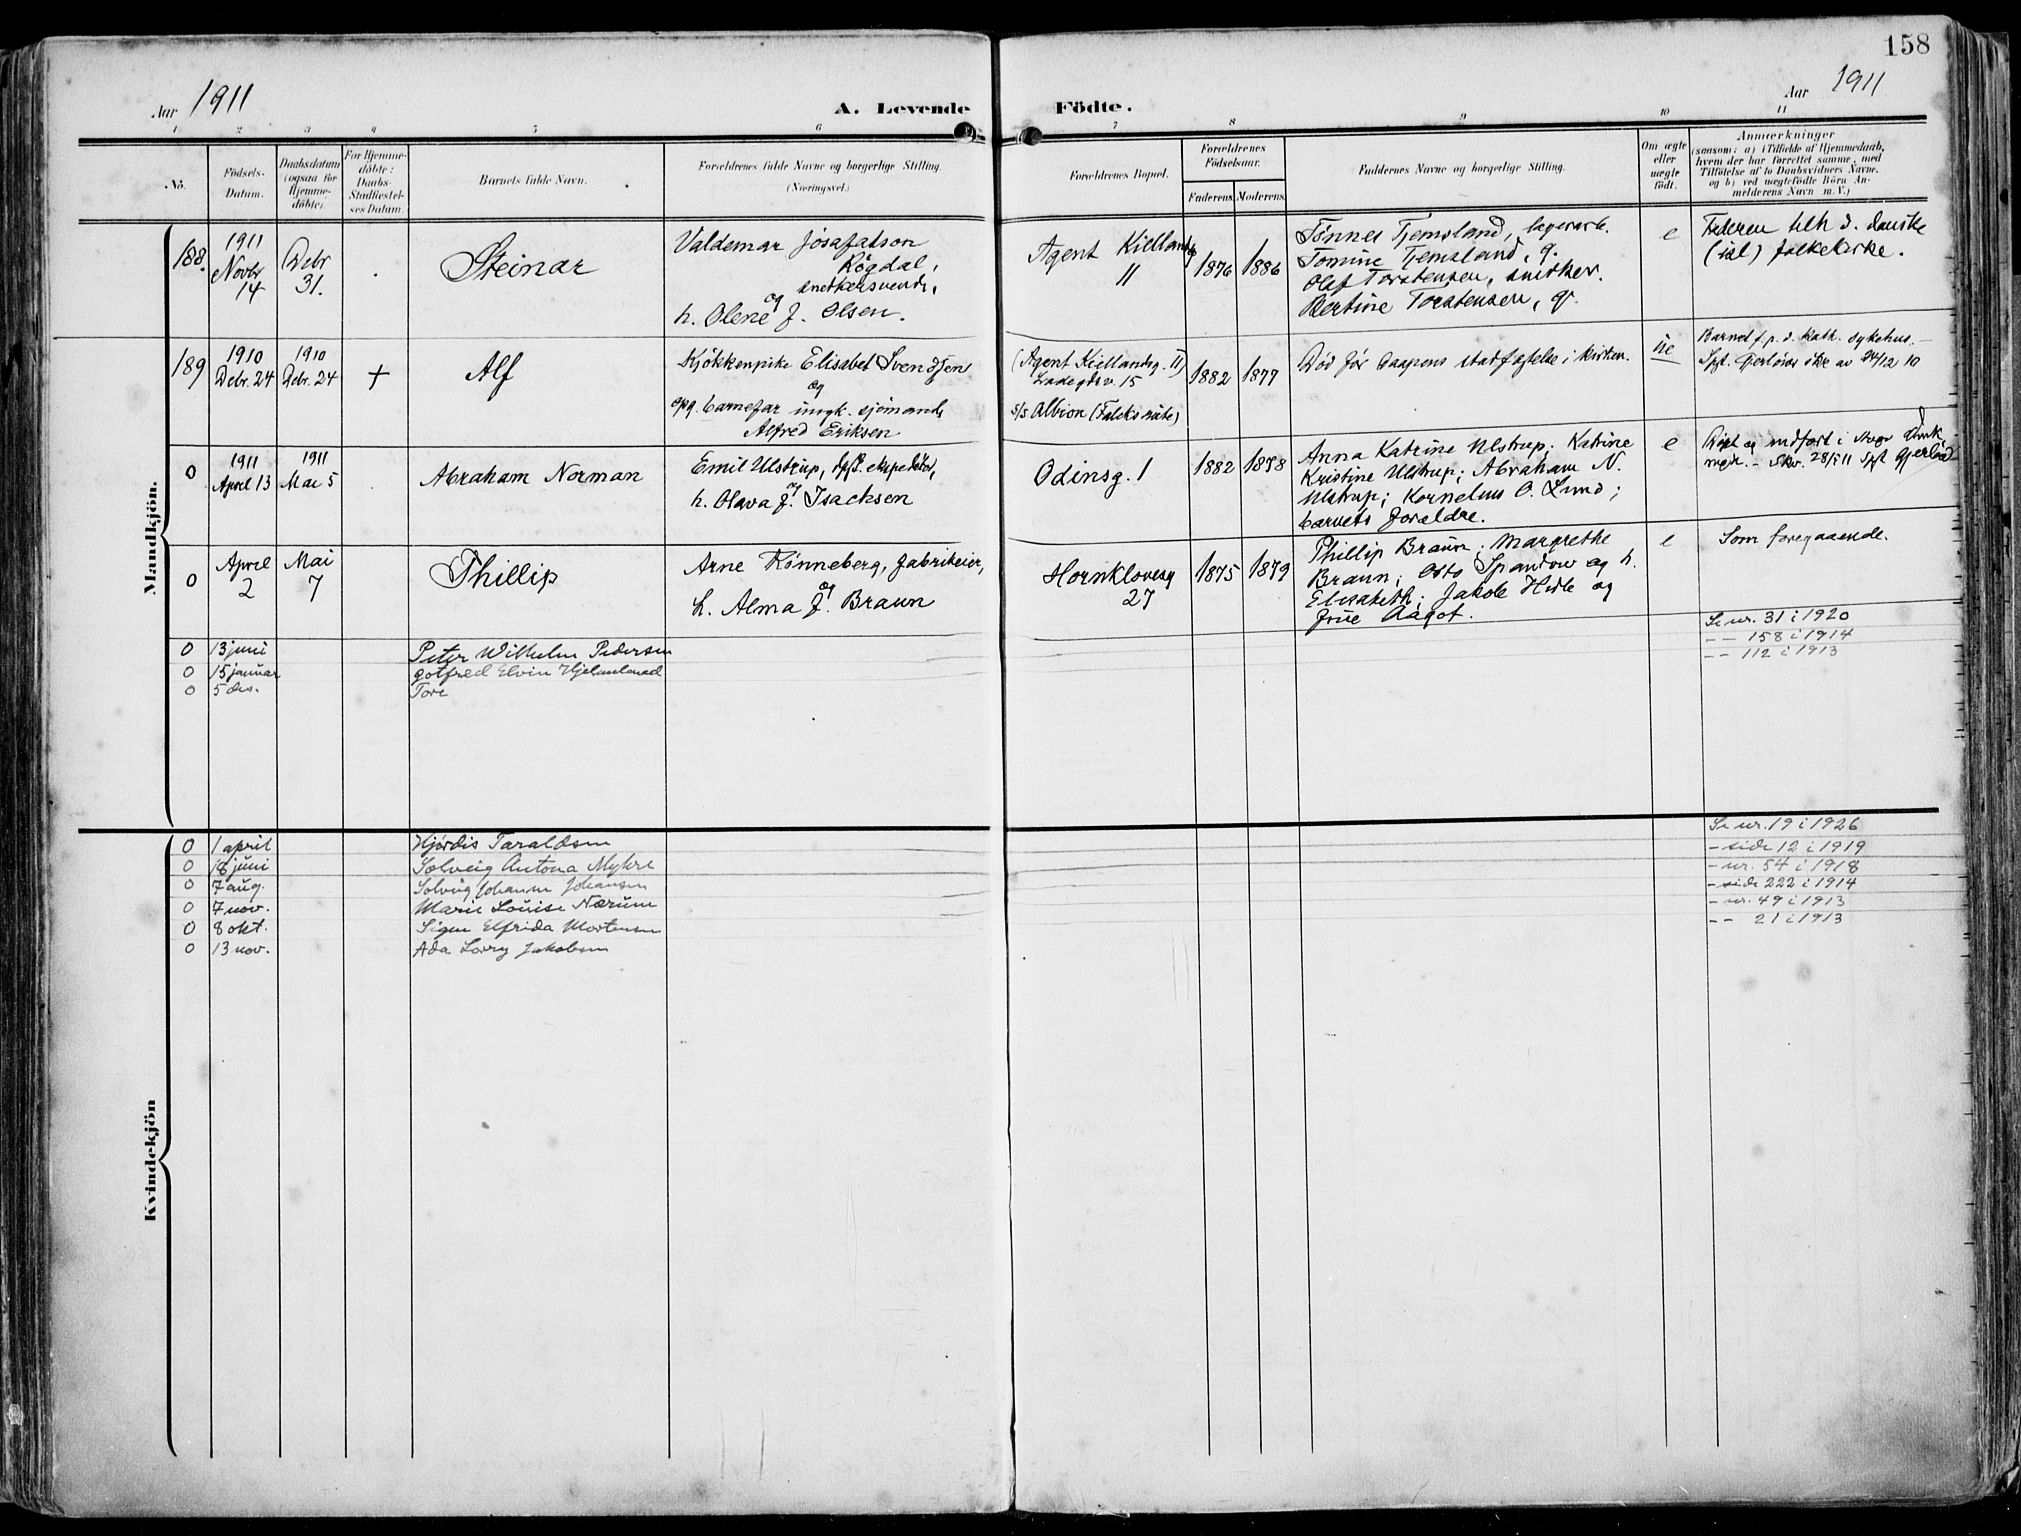 158
Aar 1911
A. Levende
Födte.
Aar 1911
1 2 3 4 5 6 7 8 9 10 11
No.
Födsels-
Datum.
Daabsdatum
(ogsaa for
Hjemme-
döbte).
For Hjemme-
döbte:
Daabs-
Stadfæstel-
ses Datum.
Barnets fulde Navn.
Forældrenes fulde Navne og borgerlige Stilling.
(Næringsvei.)
Forældrenes Bopæl.
Forældrenes
Födselsaar.
Faderens Moderens
Faddernes Navne og borgerlige Stilling.
Om ægte
eller
uægte
födt.
Anmærkninger
(saasom: a) i Tilfælde af Hjemmedaab,
hvem der har forrettet samme, med
Tilföielse af to Daabsvidners Navne,
og b) ved uægtefödte Börn An-
melderens Navn m. V.)
Mandkjön.
188.
1911
Novbr
14
Debr
31.
Steinar
Valdemar Josafatson
Røgdal,
snedkersvend,
og
h. Olene f. Olsen.
Agent Kiellandsg
11
1876 1886
Tønnes Tjemsland, lagerarb.
Tomine Tjemsland, g.
Olaf Torstensen, snedker.
Bertine Torstensen, g.
e
Faderen tilh. d. danske
(isl) folkekirke.
189
1910
Debr. 24
1910
Debr. 24
+
Alf
Kjøkkenpike Elisabet Svendsen
og
opg. barnefar ungk. sjømand
Alfred Eriksen
(Agent Kiellandsg. 11)
Ladegdsv. 15
s/s Albion (Falcks rute)
1882 1877
Død før daapens stadfestelse i kirken.
ue
Barnet f. p. d. kath. sykehus.
Spt. Gjerløws skr. av 24/12 10
0
1911
April 13
1911
Mai 5
Abraham Norman
Emil Ulstrup, dpsk. expeditør,
og
h. Olava f. Isachsen
Odinsg. 1
1882 1878
Anna Katrine Ulstrup; Katrine
Kristine Ulstrup; Abraham N.
Ulstrup; Kornelius O. Lund;
barnets forældre.
e
Døpt og indført i Stvgr Domk.
mgr. - Skr. 28/5 11 Spt Gjerløw
0
April
2
Mai
7
Phillip
Arne Rønneberg, fabrikeier,
og
h. Alma f. Braun
Hornklovesg
27
1875 1879
Phillip Braun; Margrethe
Braun; Otto Spandow og h.
Elisabeth; Jakob Hidle og
frue Aagot.
e
Som foregaaende.
0 13 juni Peter Wilhelm Pedersen Se nr. 31 i 1920
0 15 januar Gotfred Elvin Hjelmeland - - 158 i 1914
0 5 des. Tore - - 112 i 1913
Kvindekjön
0 1 april Hjørdis Taraldsen Se nr. 19 i 1926
0 18 juni Solveig Antona Myhre - side 12 i 1919
0 7 aug. Solveig Johanne Johansen - nr. 54 i 1918
0 7 nov. Marie Louise Nærum - side 222 i 1914
0 8 okt. Signe Elfrida Mortensen - nr. 49 i 1913
0 13 nov. Ada Lovry Jakobsen - - 21 i 1913